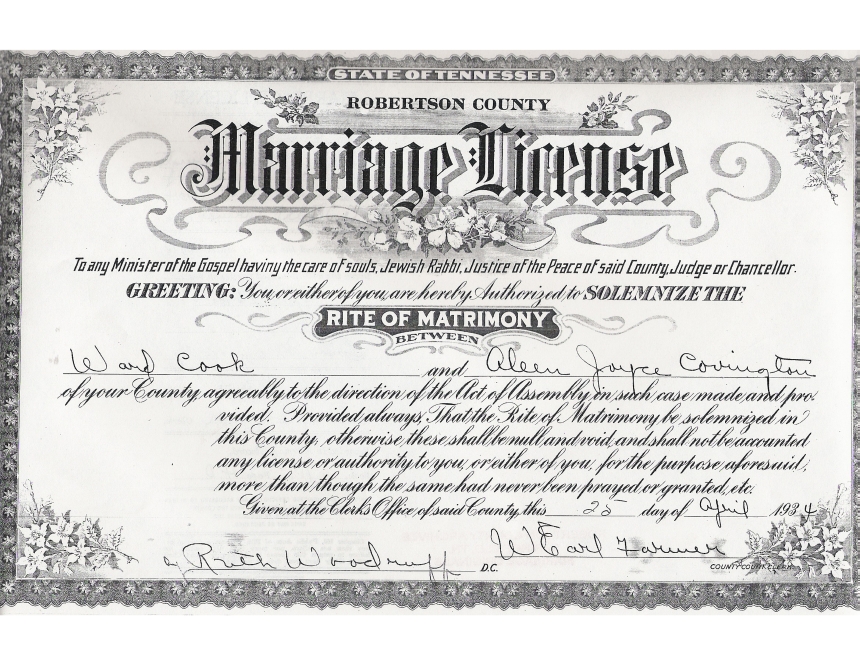 STATE OF TENNESSEE
ROBERTSON COUNTY
Marriage License
To any Minister of the Gospel having the care of souls, Jewish Rabbi, Justice of the Peace of said County, Judge or Chancellor.
GREETING: You, or either of you, are hereby Authorized to SOLEMNIZE THE
RITE OF MATRIMONY
BETWEEN
Ward Cook and Aleen Joyce Covington
of your County, agreeably to the direction of the Act of Assembly in such case made and pro-
vided. Provided always, That the Rite of Matrimony be solemnized in
this County, otherwise these shall be null and void, and shall not be accounted
any license or authority to you, or either of you, for the purpose aforesaid,
more than though the same had never been prayed or granted, etc.
Given at the Clerk's Office of said County, this 25 day of April 1934
by Ruth Woodruff D.C. W Earl Farmer
COUNTY COURT CLERK